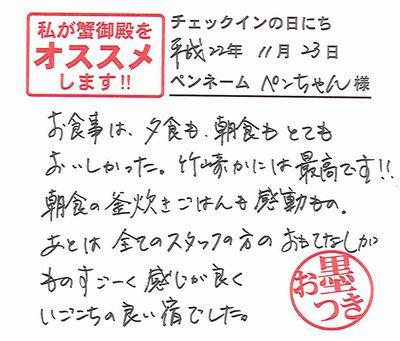 私が蟹御殿を
オススメ
します!!
チェックインの日にち
平成22年 11月 23日
ペンネーム ペンちゃん 様
お食事は、夕食も、朝食も とても
おいしかった。竹崎かには 最高です!!
朝食の釜炊きごはんも 感動もの。
あとは 全てのスタッフの方の おもてなしが
ものすごーく 感じが良く
いごこちの良い宿でした。
お墨つき